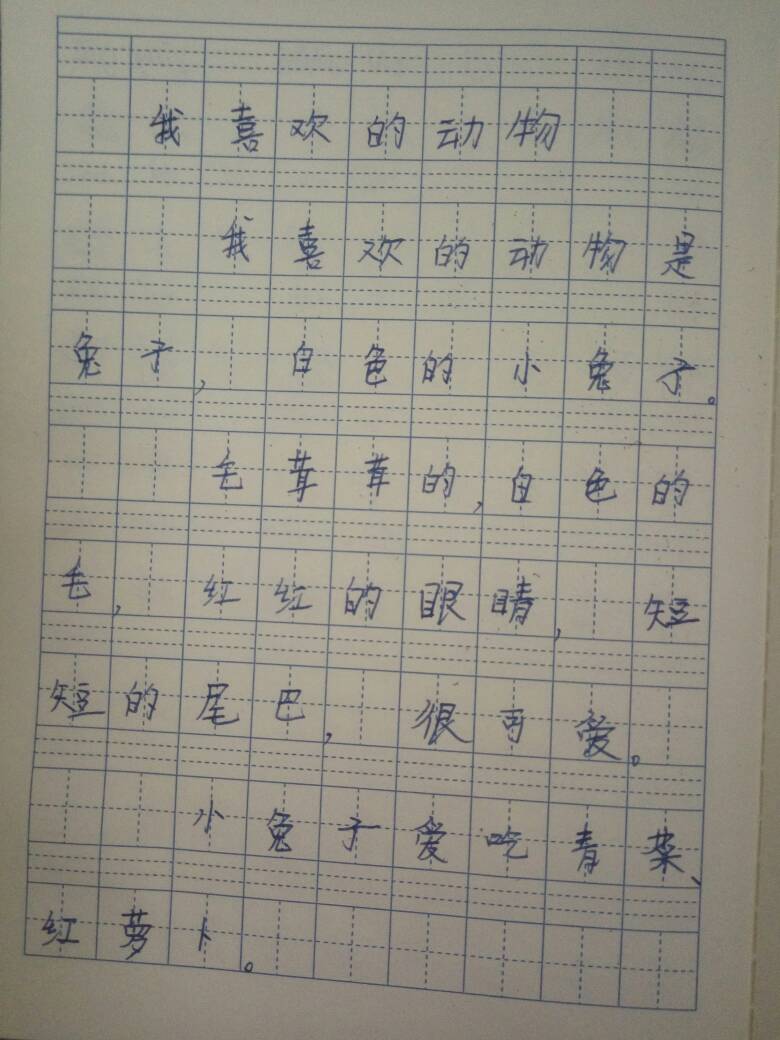 我喜欢的动物
我喜欢的动物是
兔子,白色的小兔子。
毛茸茸的,白色的
毛,红红的眼睛,短
短的尾巴,很可爱。
小兔子爱吃青菜、
红萝卜。